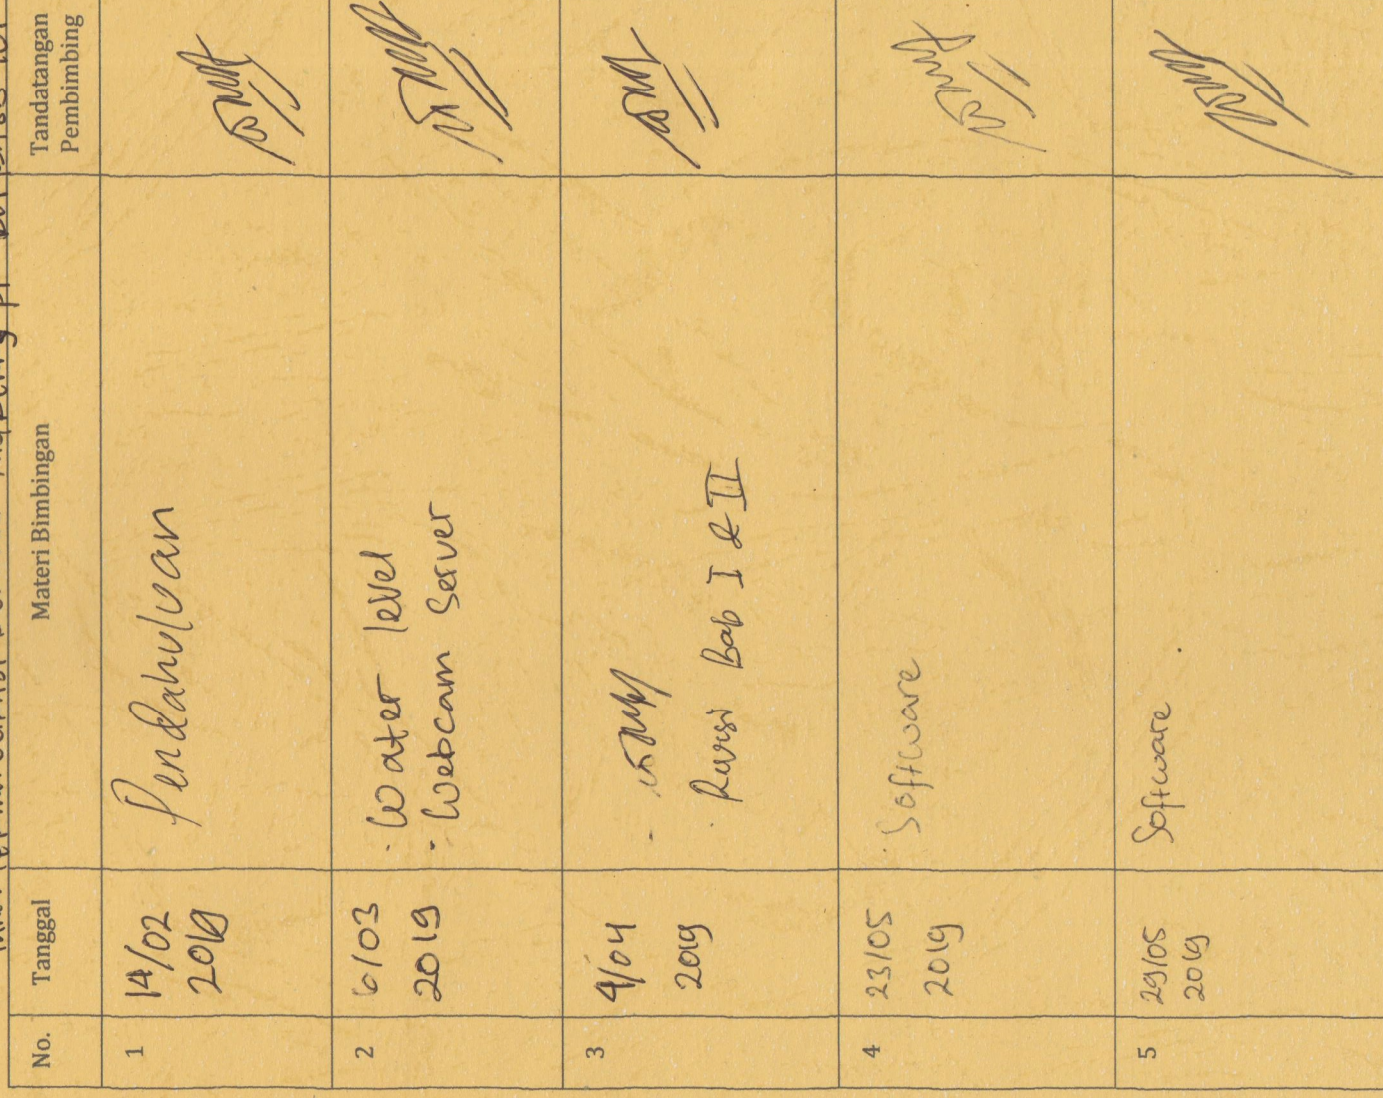 No.
Tanggal
Materi Bimbingan
Tandatangan
Pembimbing
1
14/02
2019
Pendahuluan
2
6/03
2019
- Water level
- Webcam Server
3
4/04
2019
-
. Revisi Bab I & II
4
23/05
2019
. Software
5
29/05
2019
Software